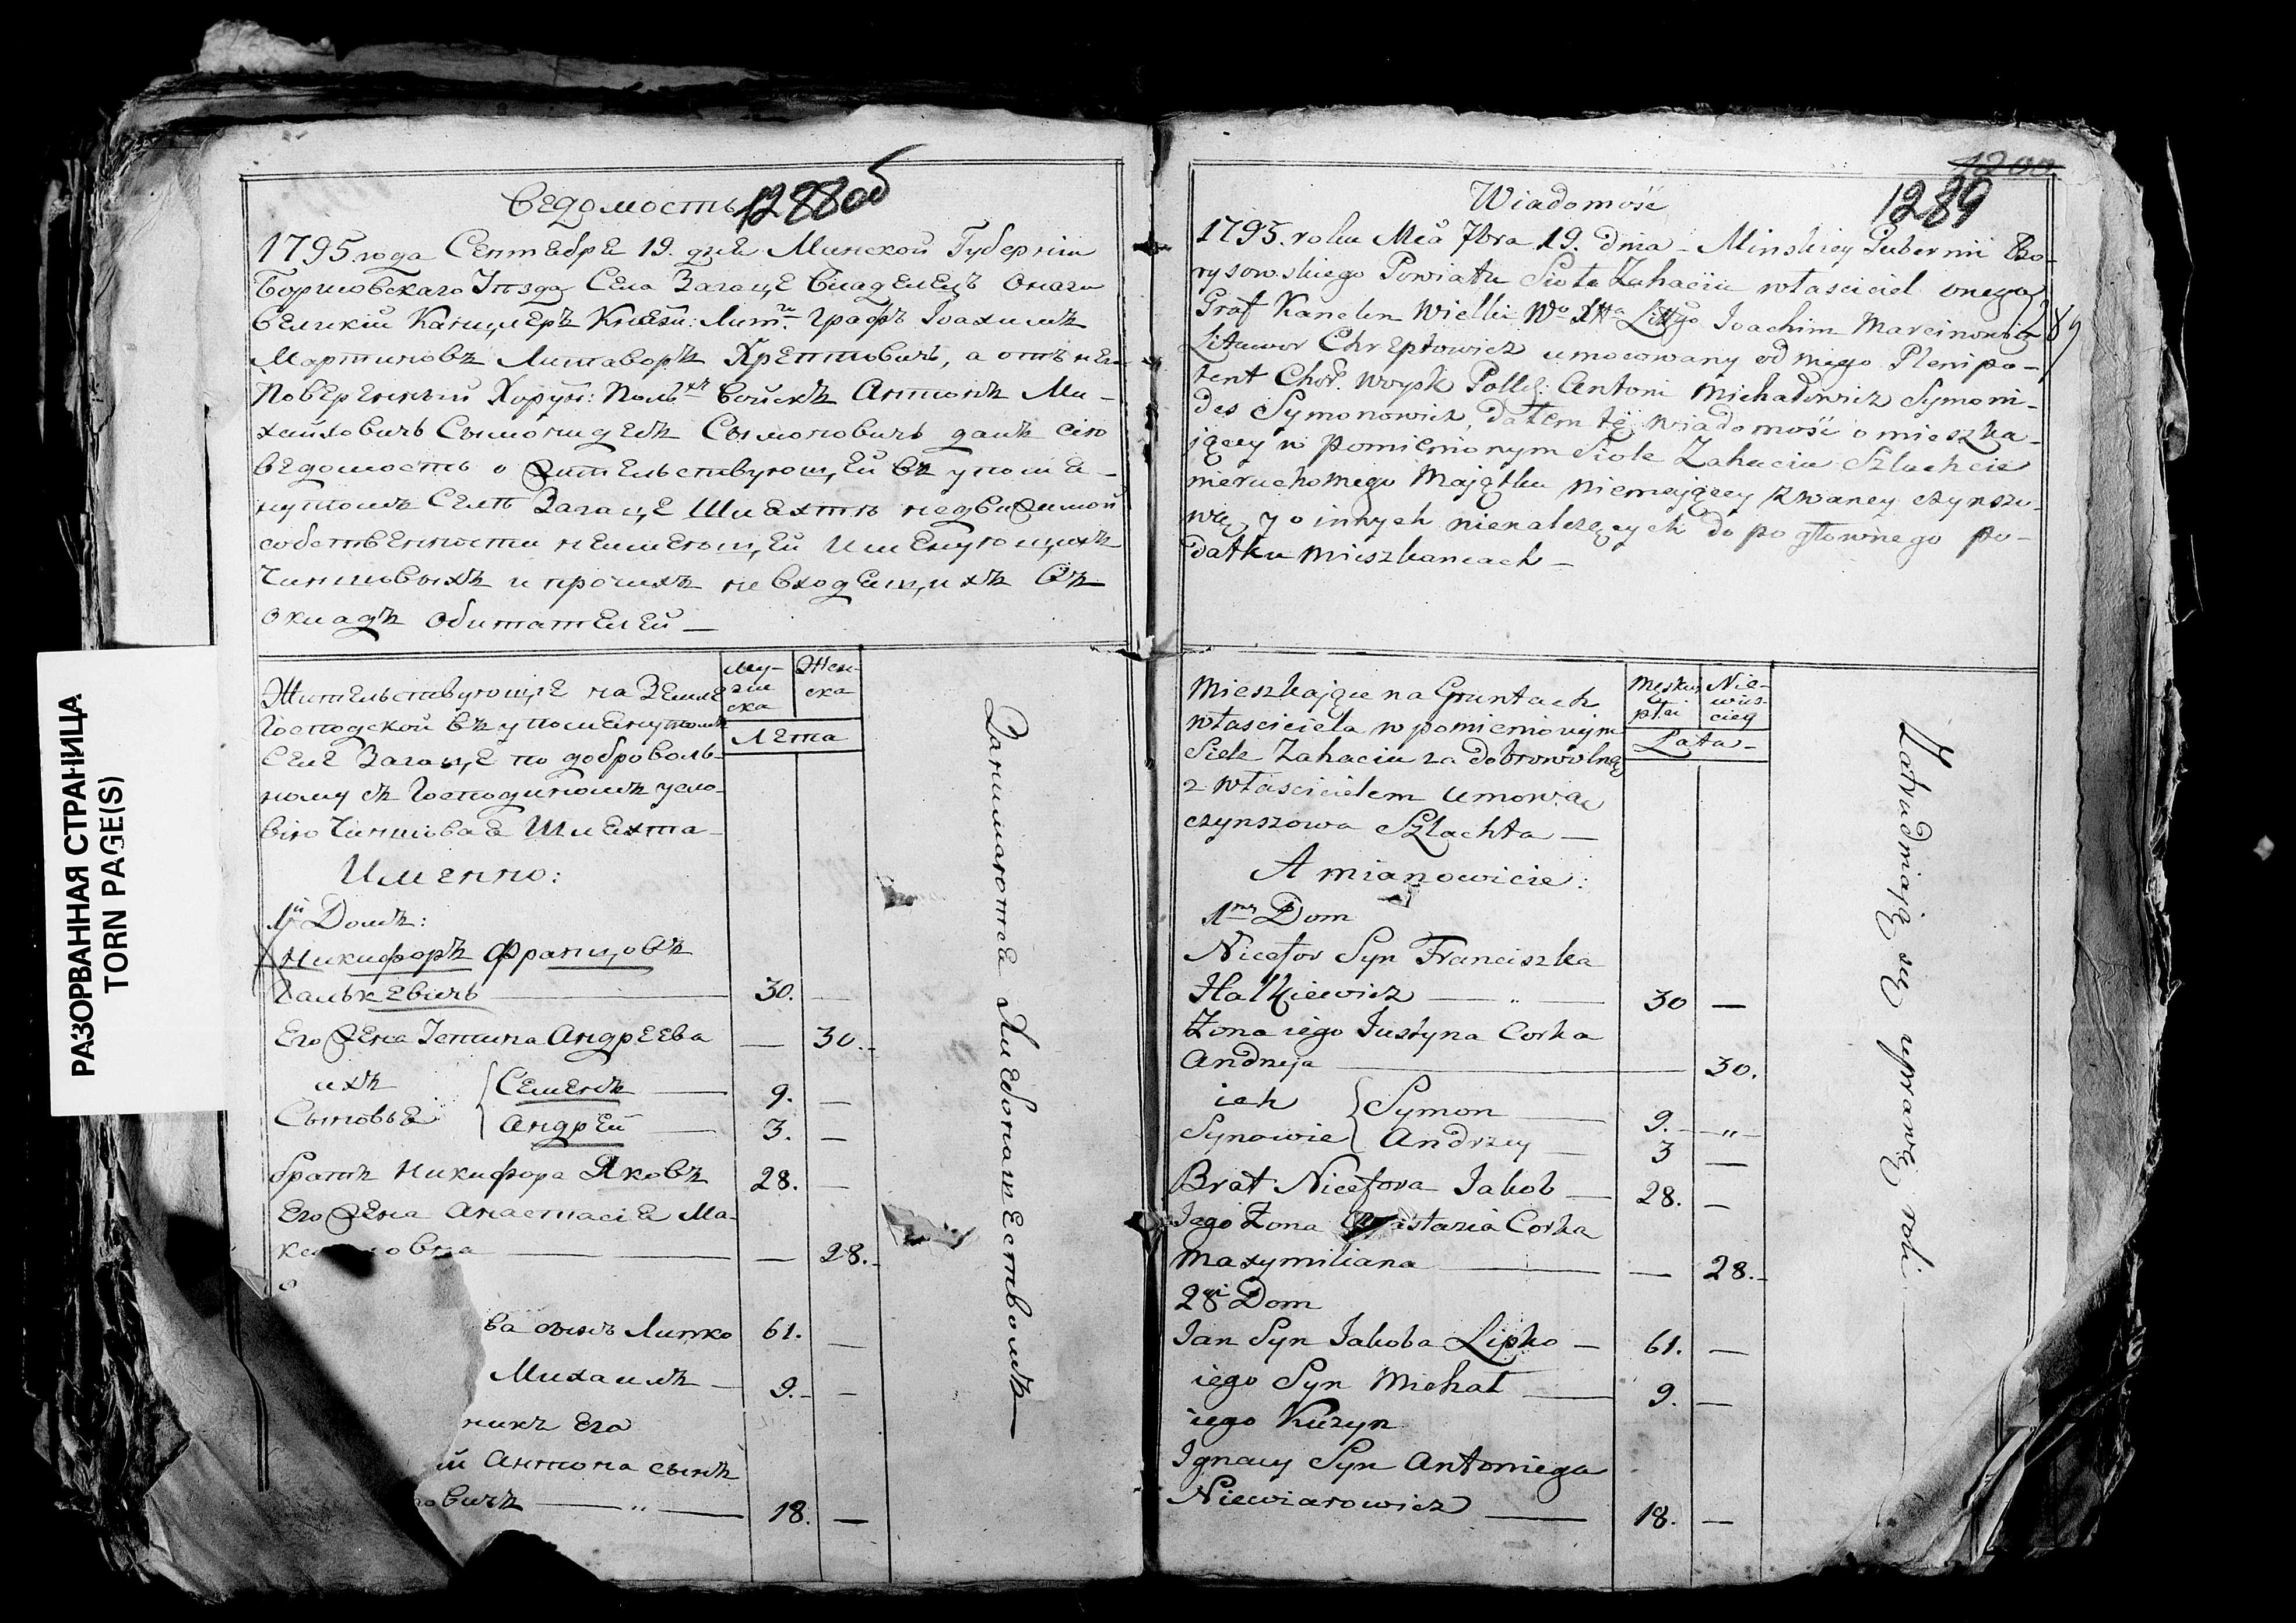 РАЗОРВАННАЯ СТРАНИЦА
TORN PAGE(S)
Ведомость 1288об
1795 года Сентебре 19. дне Минской Губернiи
Борисовскаго Уезда Села Загаце Владелецъ Онаго
Великiй Канцлеръ Графъ Iоахимъ
Мартиновъ Литаворъ Хрептовичъ, а отъ нег
Поверенный Хоруж: войскъ Антонъ Ми-
хайловичъ Сымонидесъ Сымоновичъ далъ сiю
ведомость о жительствующей въ упоме-
нутомъ Селе Загаце Шлехтъ недвижимой
собственности неимеющей Именующихъ
Чиншовыхъ и прочихъ невходещихъ въ
окладъ обитателей —
Жительствующiе на Земле
Господской въ упоменутомъ
Селе Загаце по доброволь-
ному съ Господиномъ усло-
вiю Чиншовая Шлехта
Муж-
ска
Жен-
ска
Лета
Именно:
1й Домъ:
Никифоръ Францовъ
Галькевичъ — 30. —
Его Жена Iстина Андреева — 30. -
ихъ Семенъ — 9. —
Сыновье Андрей — 3. —
братъ Никифора Яковъ 28. —
Его Жена Анастасiе Ма-
овна — — 28. -
ва сынъ Липко 61. —
Михаилъ — 9. - —
никъ Его
й Антона сынъ
овичъ — „ — 18. —
Занимаются Хлебопашествомъ —
1200
1289
Wiadomość
1795. roku Mca 7bra 19. dnia - Minskiey Gubernii Bo-
rysowskiego Powiatu Sioła Zahacia własciciel onego
Graf Kanclerz Wielki Wo Xtta Littgo Joachim Marcinowicz
Litawor Chreptowicz umocowany od niego Plenipo-
tent Chor. woysk Polls. Antoni Michałowicz Symoni-
des Symonowicz, dałem tę wiadomość o mieszka-
jącey w pomienionym Siole Zahaciu Szlachcie
nieruchomego Majątku niemającey zwaney czynszo-
wą, y o innych nienalezących do pogłownego po-
datku mieszkancach —
Mieszkające na Gruntach
własciciela w pomienionym
Siele Zahaciu za dobrowolną
z własscicielem umową
czynszowa Szlachta —
Męskiey
płci
Nie-
wies-
ciey
Lata -
A mianowicie:
1szy Dom
Nicefor Syn Franciszka
Halkiewicz — „ — 30 —
Zona iego Justyna Corka
Andrzeja — 30.
ich Symon — 9. — „ —
Synowie Andrzey — 3 —
Brat Nicefora Jakob — 28. —
Jego Zona Anastazia Corka
Maxymiliana — — 28. -
2gi Dom
Jan Syn Jakoba Lipko — 61. —
iego Syn Michał — 9. —
iego Kuzyn
Ignacy Syn Antoniego
Niewiarowicz — 18. —
Zatrudniają się uprawą roli —